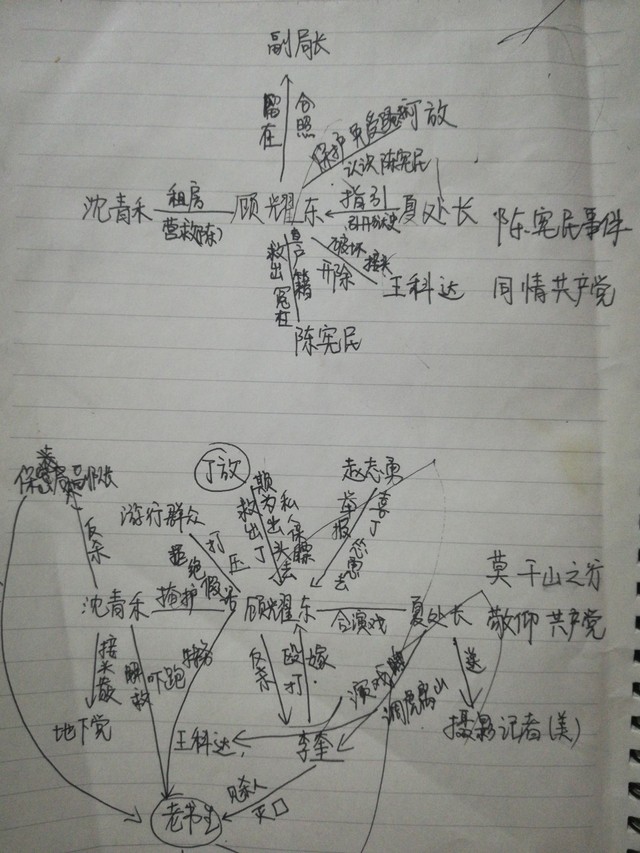 副局长
留在
合照
保护
丁放
认识陈宪民
沈青禾
租房
营救(陈)
顾耀东
指引
夏处长
陈宪民事件
查户籍
救出
破坏接头
开除
王科达
同情共产党
陈宪民
保密局副队长
丁放
赵志勇
游行群众
反杀
打压
拒绝
救出丁
期为出头去
私人保镖
举报
喜丁
怂恿去
莫干山之行
沈青禾
掩护
假话
顾耀东
合演戏
夏处长
敬仰共产党
接头
解放
吓跑
反杀
殴打
嫁
演戏
调虎离山
送
地下党
王科达
李奎
摄影记者(美)
老书生
杀人
灭口